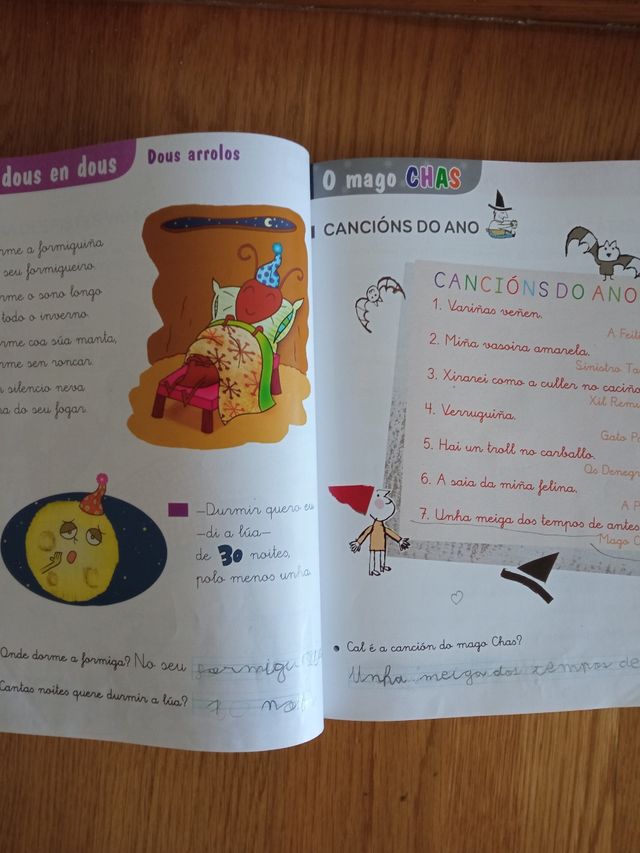 dous en dous
Dous arrolos
a formiguiña
seu formigueiro.
o sono longo
todo o inverno.
coa súa manta,
sen roncar.
silencio neva
do seu fogar.
—Durmir quero eu
—di a lúa—
de 30 noites,
polo menos unha.
Onde dorme a formiga? No seu formigu
Cantas noites quere durmir a lúa?
O mago CHAS
CANCIÓNS DO ANO
CANCIÓNS DO ANO
1. Variñas veñen.
2. Miña vasoira amarela.
Sinistro
3. Xirarei como a culler no caciño
Xil
4. Verruguiña.
Gato
5. Hai un troll no carballo.
Os
6. A saia da miña felina.
A
7. Unha meiga dos tempos de antes
Mago
Cal é a canción do mago Chas?
Unha meiga dos tempos de